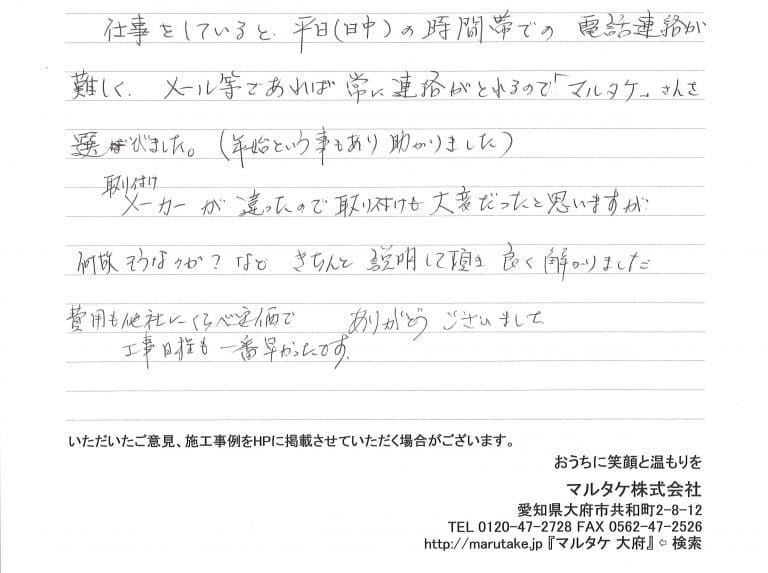 仕事をしていると、平日(日中)の時間帯での 電話連絡が
難しく、メール等であれば常に連絡がとれるので「マルタケ」さんを
選びました。(年始という事もあり助かりました)
取り付け
メーカーが違ったので取り付けも大変だったと思いますが
何故そうなのか?など きちんと説明して頂き良く解かりました
費用も他社にくらべ安価で ありがとうございました。
工事日程も一番早かったです。
いただいたご意見、施工事例をHPに掲載させていただく場合がございます。
おうちに笑顔と温もりを
マルタケ株式会社
愛知県大府市共和町2-8-12
TEL 0120-47-2728 FAX 0562-47-2526
http://marutake.jp『マルタケ 大府』⇦ 検索